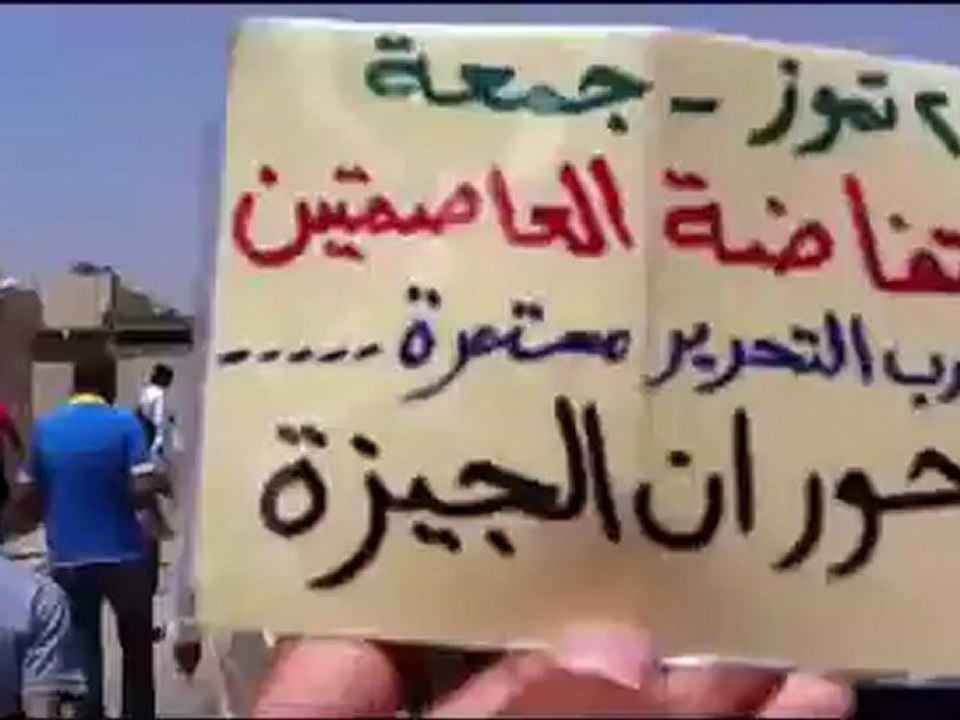 تموز - جمعة
العاصمتين
التحرير مستمرة .....
حوران الجيزة